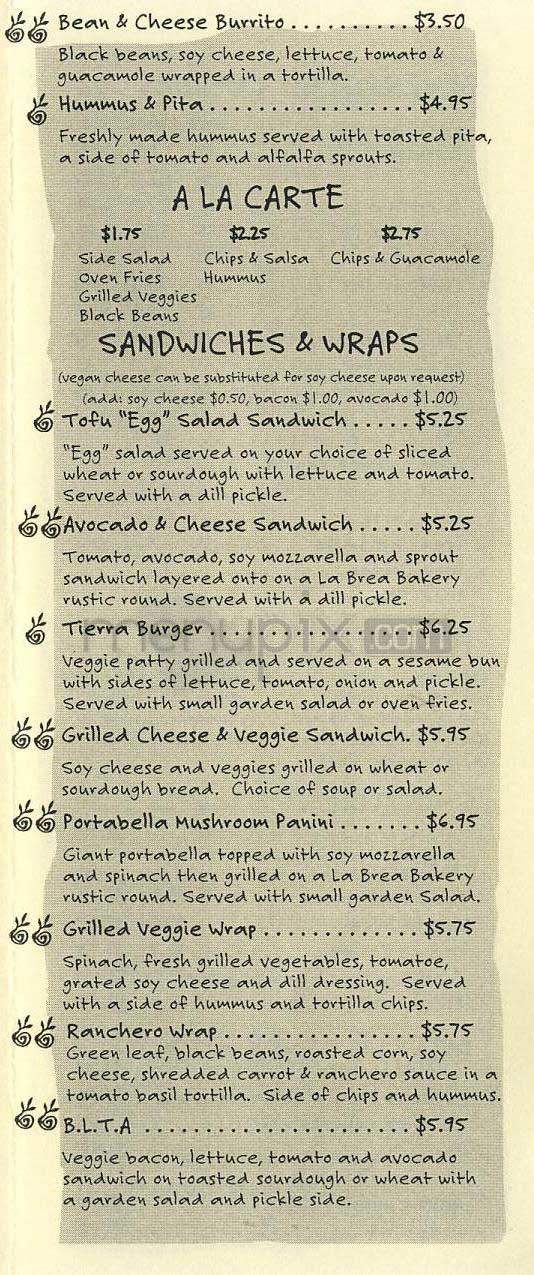 Bean & Cheese Burrito .......... $3.50
Black beans, soy cheese, lettuce, tomato &
guacamole wrapped in a tortilla.
Hummus & Pita ................. $4.95
Freshly made hummus served with toasted pita,
a side of tomato and alfalfa sprouts.
A LA CARTE
$1.75 $2.25 $2.75
Side Salad Chips & Salsa Chips & Guacamole
Oven Fries Hummus
Grilled Veggies
Black Beans
SANDWICHES & WRAPS
(vegan cheese can be substituted for soy cheese upon request)
(add: soy cheese $0.50, bacon $1.00, avocado $1.00)
Tofu "Egg" Salad Sandwich ..... $5.25
"Egg" salad served on your choice of sliced
wheat or sourdough with lettuce and tomato.
Served with a dill pickle.
Avocado & Cheese Sandwich ..... $5.25
Tomato, avocado, soy mozzarella and sprout
sandwich layered onto on a La Brea Bakery
rustic round. Served with a dill pickle.
Tierra Burger ................. $6.25
menupix.com
Veggie patty grilled and served on a sesame bun
with sides of lettuce, tomato, onion and pickle.
Served with small garden salad or oven fries.
Grilled Cheese & Veggie Sandwich. $5.95
Soy cheese and veggies grilled on wheat or
sourdough bread. Choice of soup or salad.
Portabella Mushroom Panini ....... $6.95
Giant portabella topped with soy mozzarella
and spinach then grilled on a La Brea Bakery
rustic round. Served with small garden Salad.
Grilled Veggie Wrap ............. $5.75
Spinach, fresh grilled vegetables, tomatoe,
grated soy cheese and dill dressing. Served
with a side of hummus and tortilla chips.
Ranchero Wrap ................ $5.75
Green leaf, black beans, roasted corn, soy
cheese, shredded carrot & ranchero sauce in a
tomato basil tortilla. Side of chips and hummus.
B.L.T.A ...................... $5.95
Veggie bacon, lettuce, tomato and avocado
sandwich on toasted sourdough or wheat with
a garden salad and pickle side.